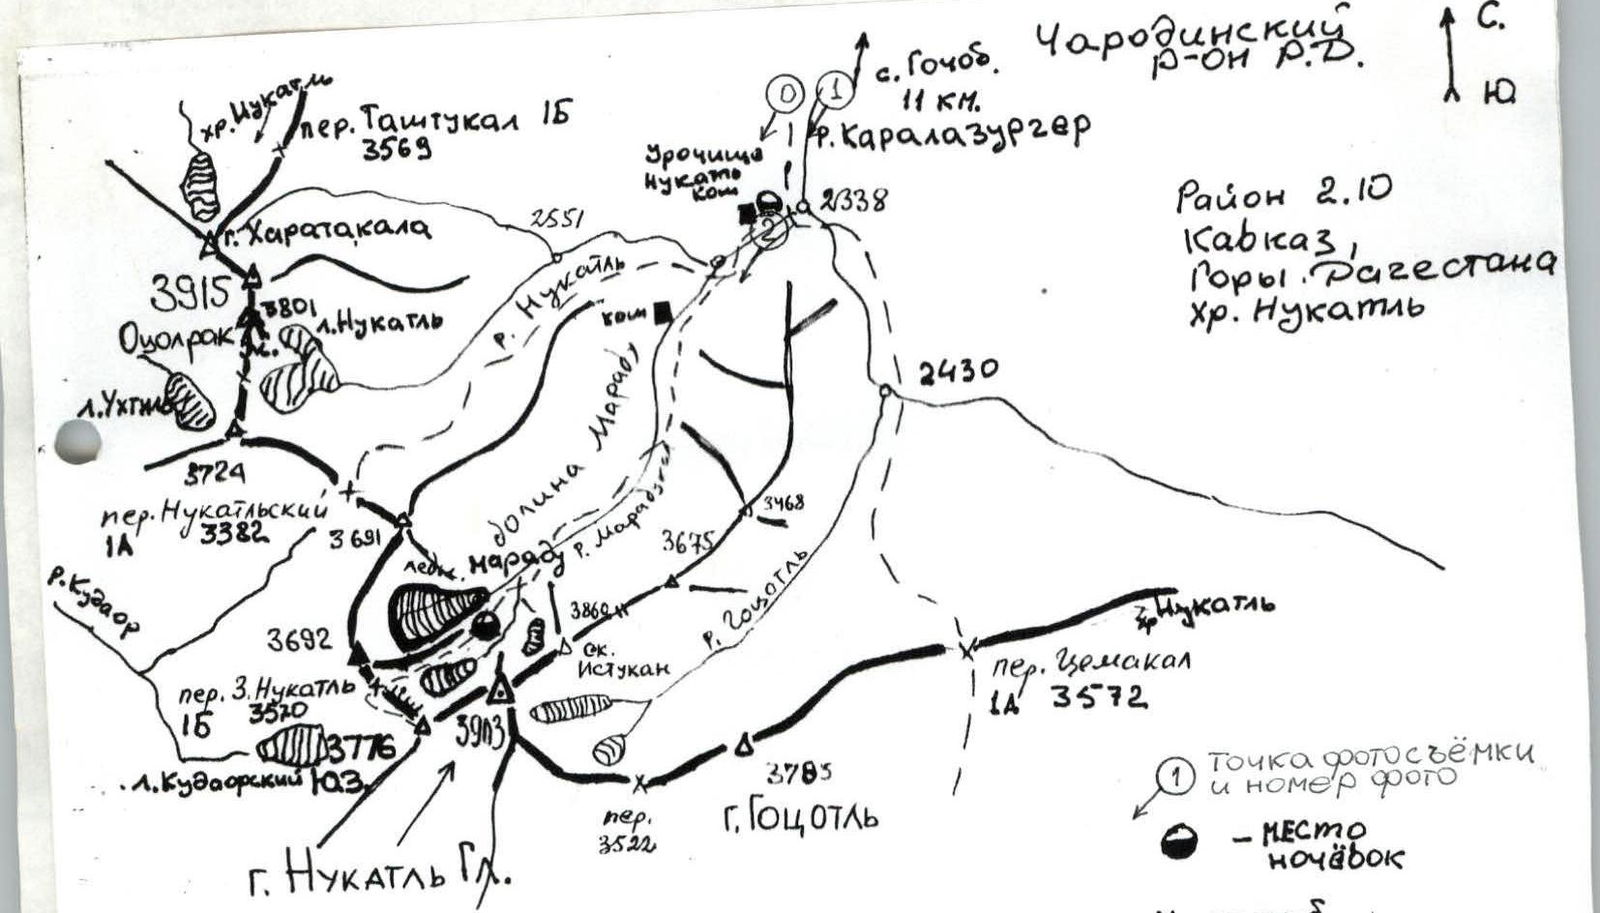 Чародинский
Р-ОН Р.Д.
С.
Ю
с. Гочоб.
11 км.
0
1
р. Каралазургер
хр. Нукатль
пер. Таштукал 1Б
3569
Урочище
Нукатль
кош
2
2338
Район 2.10
Кавказ,
Горы. Дагестана
хр. Нукатль
г. Харатакала
2551
3915
3801
Оцолрак
л. Нукатль
р. Нукатль
кош
л. Ухтиль
2430
долина Мараду
3724
пер. Нукатльский
1А 3382
3691
3468
3675
р. Марадуни
ледн. Мараду
р. Кудаор
3692
р. Гоцотль
ск.
Истукан
хр. Нукатль
пер. Цемакал
1А 3572
пер. З. Нукатль
3570
1Б
3776
3903
л. Кудаорский ЮЗ.
3785
г. Гоцотль
пер.
3522
г. Нукатль Гл.
1 точка фотосъёмки
и номер фото
- место
ночёвок